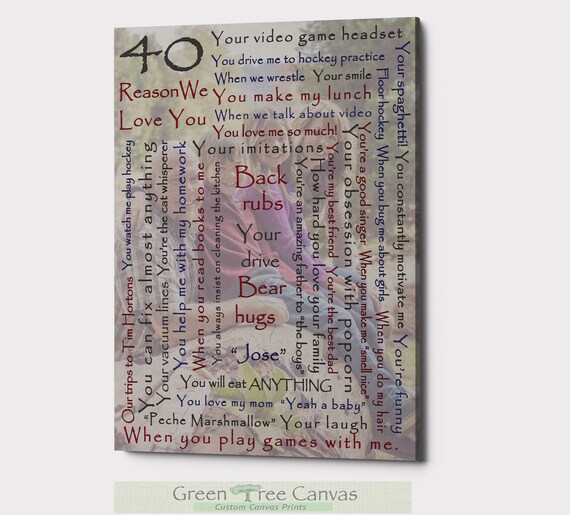 40
ReasonWe
Love You
Your video game headset
You drive me to hockey practice
When we wrestle Your smile
You make my lunch
When we talk about video
You love me so much!
Your imitations
Your spaghetti!
Floor hockey
You watch me play hockey
Our trips to Tim Hortons
You can fix almost anything
You're the cat whisperer
Your vacuum lines
You help me with my homework
When you read books to me
You always insist on cleaning the kitchen
Back
rubs
Your
drive
Bear
hugs
"Jose"
You're an amazing father to "the boys"
How hard you love your family
You're my best friend
You're the best dad
Your obsession with popcorn
You're a good singer
When you make me "smell nice"
When you bug me about girls
When you do my hair
You constantly motivate me
You're funny
You will eat ANYTHING
You love my mom "Yeah a baby"
"Peche Marshmallow" Your laugh
When you play games with me.
Green Tree Canvas
Custom Canvas Prints